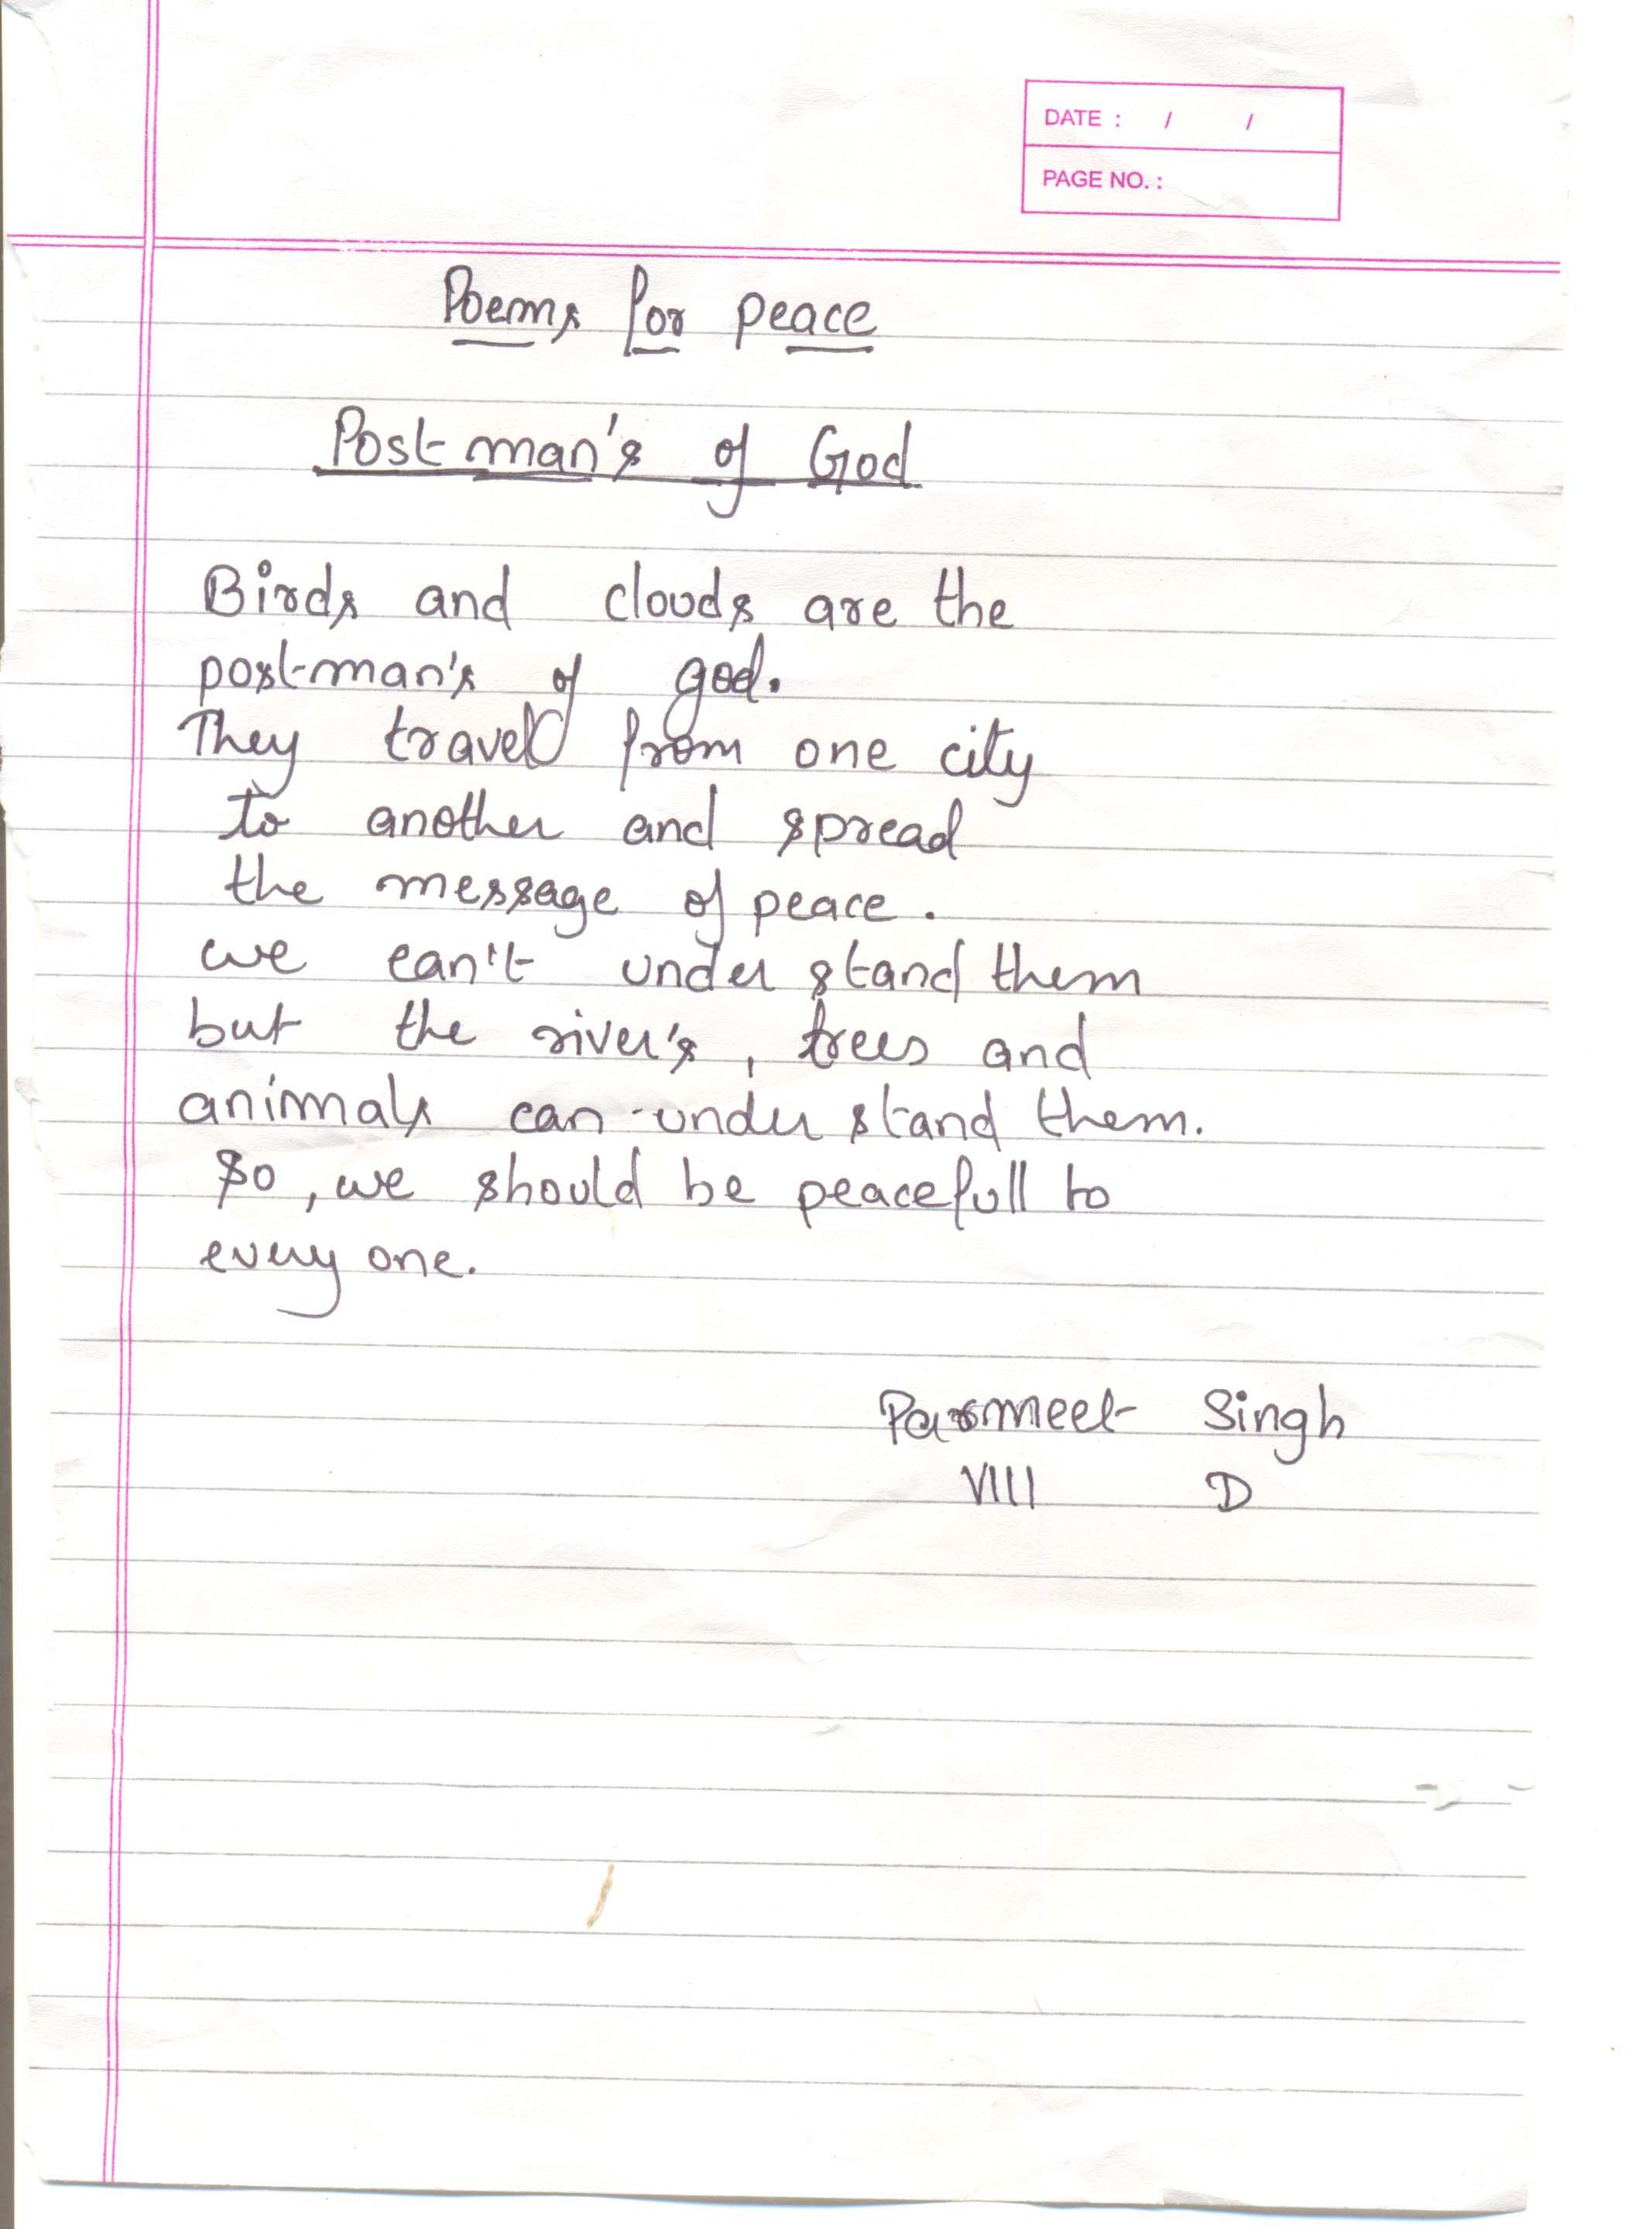 DATE : / /
PAGE NO. :
Poems for peace
Post man's of God
Birds and clouds are the
post-man's of god.
They travel from one city
to another and spread
the message of peace.
we can't under stand them
but the river's, trees and
animals can under stand them.
So, we should be peacefull to
every one.
Parmeet Singh
VIII D